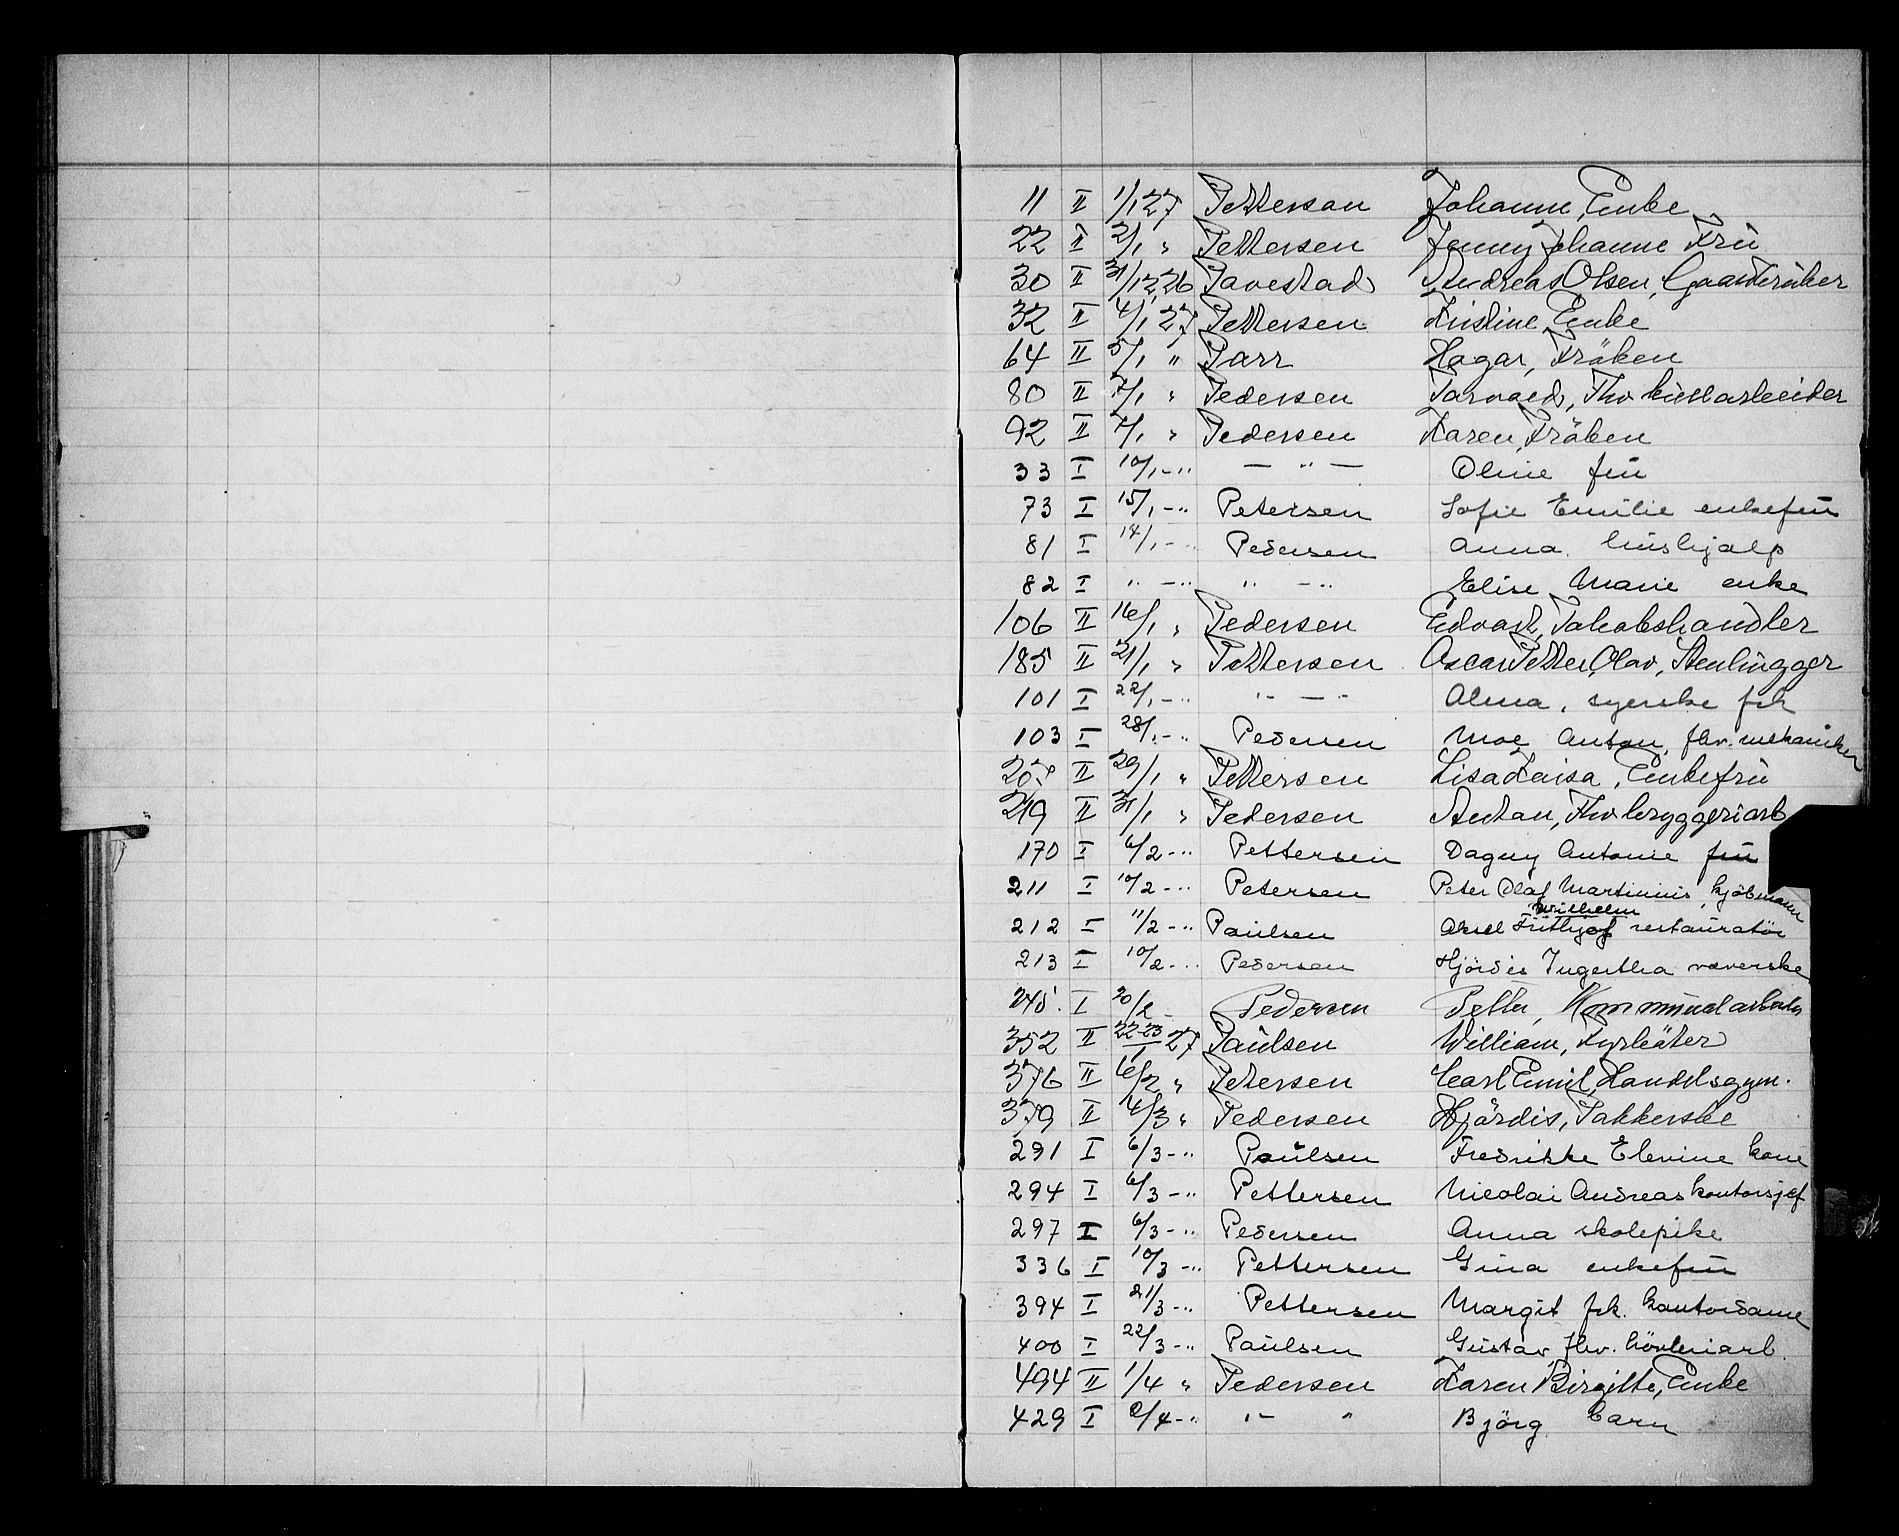 11 II 1/1 27 Pettersen Johanne, Enke
22 II 2/1 " Pettersen Jenny Johanne Frü
30 II 31/12 26 Pavestad Andreas Olsen, Gaardbrüker
32 II 4/1 27 Pettersen Kristine Enke
64 II 5/1 " Parr Hagar, Fröken
80 II 7/1 " Pedersen Torvald, Fhv.
92 II 7/1 " Pedersen Karen, Fröken
33 I 10/1 - " — " — Oline frü
73 I 15/1 - " Petersen Sofie Emilie enkefrü
81 I 14/1 - " Pedersen Anna. hüshjælp
82 I " - " " - " Elise Marie enke
106 II 16/1 " Pedersen Edvard, Tobakshandler
185 II 21/1 " Pettersen Oscar Petter Olav, Stenhügger
101 I 22/1 - " " — " Alma, syerske frk
103 I 28/1 - " Pedersen Moe Anton, fhv. mekaniker
207 II 29/1 " Pettersen Lisa Laisa, Enkefrü
219 II 31/1 " Pedersen Anton, Fhv bryggeriarb
170 I 6/2 - " Pettersen Dagny Antonie frü
211 I 10/2 - " Petersen Peter Olaf Martinius, kjöbmann
Wilhelm
212 I 11/2 - " Paülsen Aksel Frithjof restauratör
213 I 10/2 - " Pedersen Hjördis Ingertha væverske
245. I 20/2 - Pedersen Petter, Kommünalarbeider
352 II 22-23/1 27 Paülsen William, Fyrböter
376 II 16/2 " Petersen Carl Emil, Handelsgym.
379 II 4/3 " Pedersen Hjördis, Pakkerske
291 I 6/3 - " Paülsen Fredrikke Elevine kone
294 I 6/3 - " Pettersen Nicolai Andreas kontorsjef
297 I 6/3 - " Pedersen Anna skolepike
336 I 10/3 - " Pettersen Gina enkefrü
394 I 21/3 - " Pettersen Margit frk. kontordame
400 I 22/3 - " Paülsen Güstav fhv. hövleriarb.
494 II 1/4 " Pedersen Karen Birgitte, Enke
429 I 2/4 - " " - " Björg barn